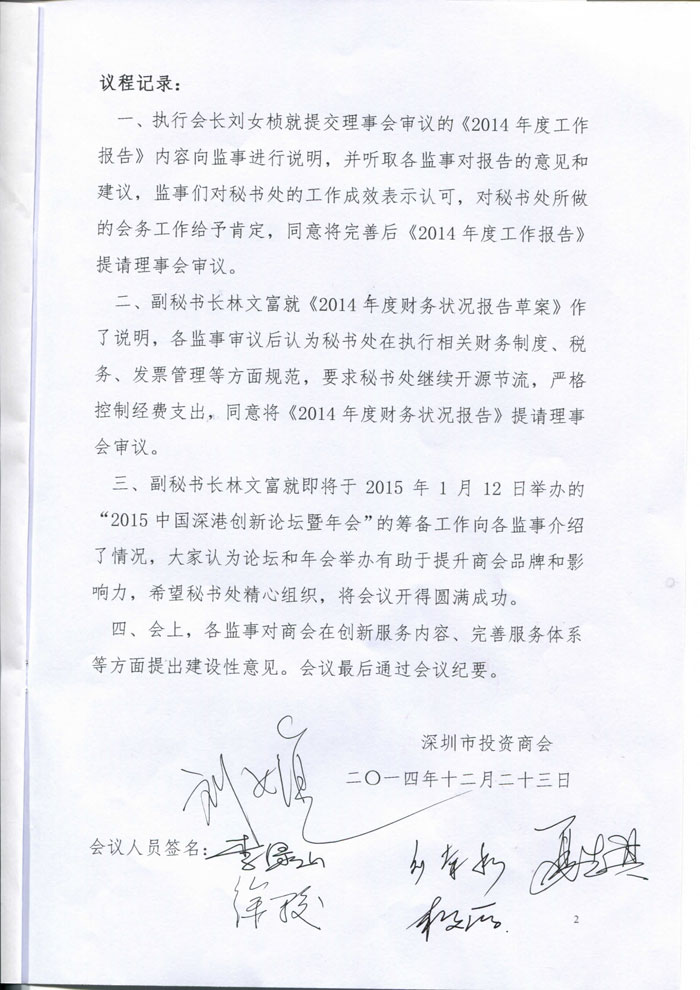 议程记录：
一、执行会长刘女桢就提交理事会审议的《2014 年度工作
报告》内容向监事进行说明，并听取各监事对报告的意见和
建议，监事们对秘书处的工作成效表示认可，对秘书处所做
的会务工作给予肯定，同意将完善后《2014 年度工作报告》
提请理事会审议。
二、副秘书长林文富就《2014 年度财务状况报告草案》作
了说明，各监事审议后认为秘书处在执行相关财务制度、税
务、发票管理等方面规范，要求秘书处继续开源节流，严格
控制经费支出，同意将《2014 年度财务状况报告》提请理事
会审议。
三、副秘书长林文富就即将于 2015 年 1 月 12 日举办的
“2015 中国深港创新论坛暨年会”的筹备工作向各监事介绍
了情况，大家认为论坛和年会举办有助于提升商会品牌和影
响力，希望秘书处精心组织，将会议开得圆满成功。
四、会上，各监事对商会在创新服务内容、完善服务体系
等方面提出建设性意见。会议最后通过会议纪要。
深圳市投资商会
二〇一四年十二月二十三日
刘女桢
会议人员签名：
2